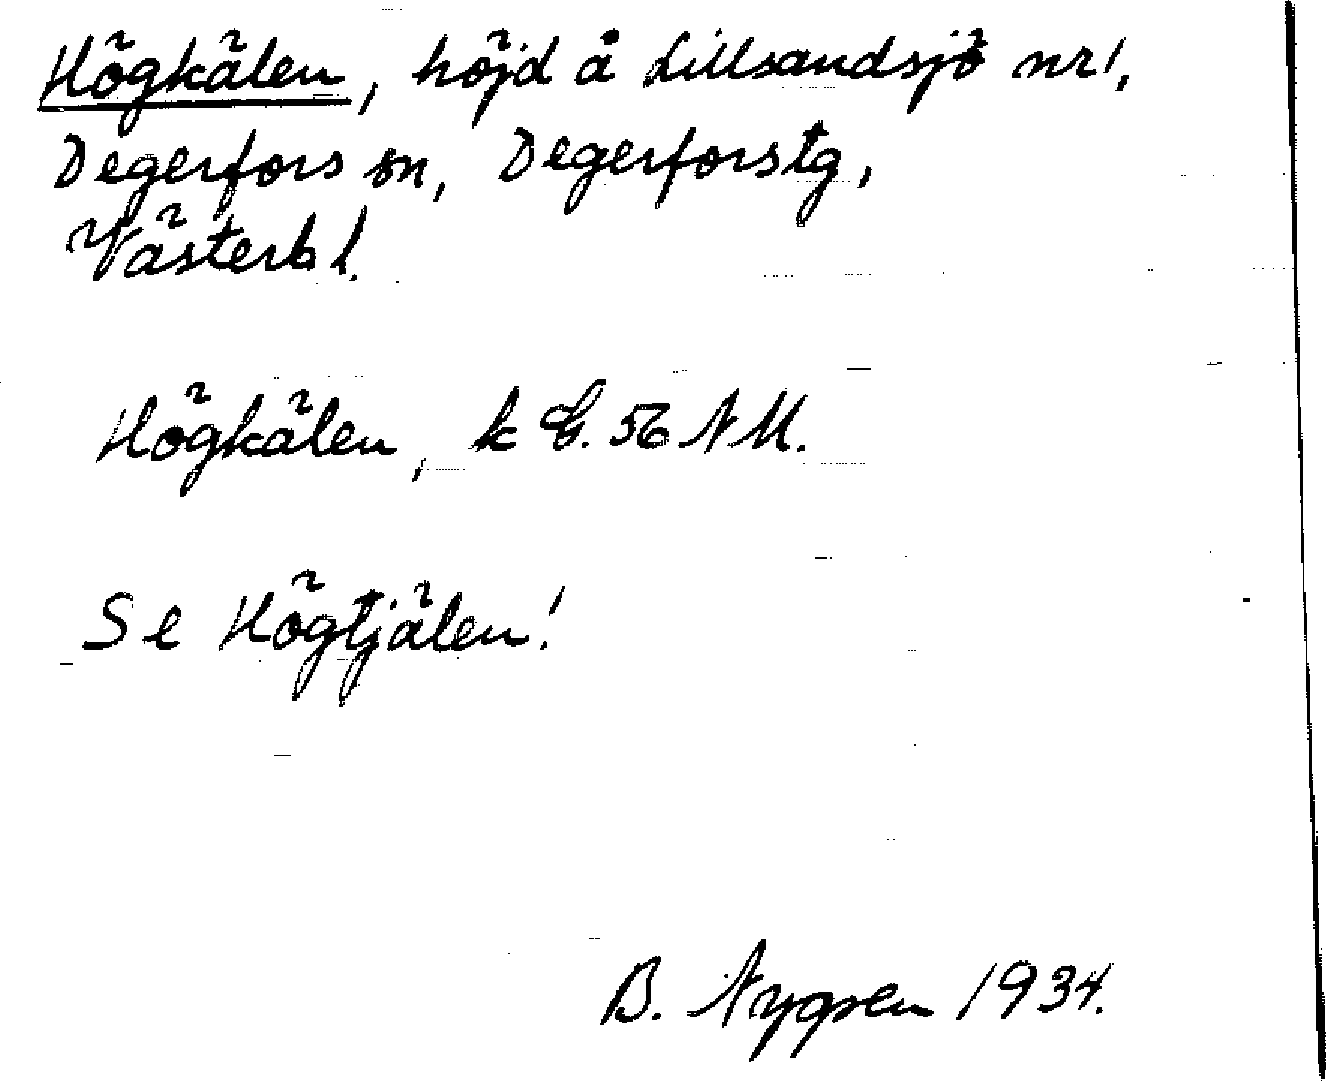 Högkälen, höjd å Lillsandsjö nr 1,
Degerfors sn, Degerfors tg,
Västerb l.
Högkälen, k G. 56 NM.
Se Högtjälen!
B. Nygren 1934.